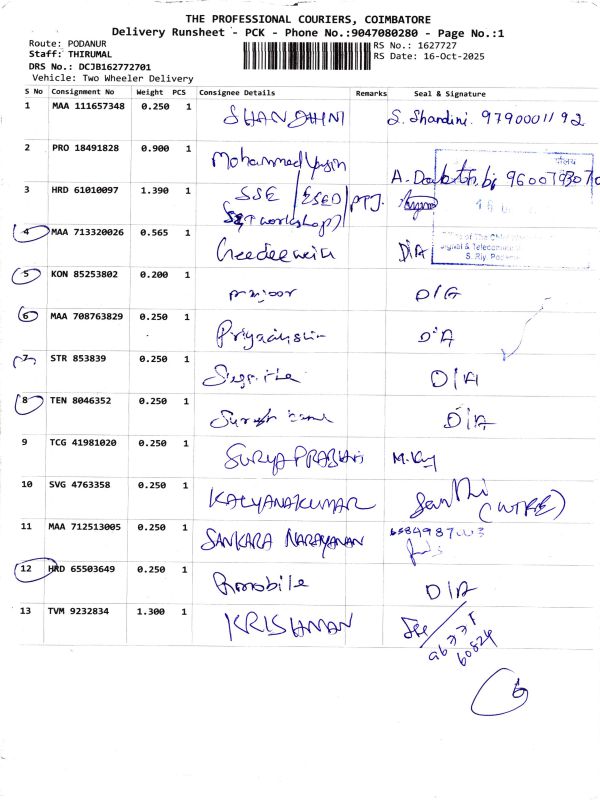 THE PROFESSIONAL COURIERS, COIMBATORE
Delivery Runsheet - PCK - Phone No.:9047080280 - Page No.:1
Route: PODANUR
Staff: THIRUMAL
DRS No.: DCJB162772701
Vehicle: Two Wheeler Delivery
RS No.: 1627727
RS Date: 16-Oct-2025
S No Consignment No Weight PCS Consignee Details Remarks Seal & Signature
1 MAA 111657348 0.250 1 SHANDHINI S. Shardini. 9790001192
2 PRO 18491828 0.900 1 Mohammed Yasin A.
3 HRD 61010097 1.390 1 SSE / ESED / PTJ.
S&T workshop)
4 MAA 713320026 0.565 1 D/A
5 KON 85253802 0.200 1 D/A
6 MAA 708763829 0.250 1 D/A
7 STR 853839 0.250 1 D/A
8 TEN 8046352 0.250 1 D/A
9 TCG 41981020 0.250 1 SURYA PRABHA
10 SVG 4763358 0.250 1 KALYANAKUMAR Santhi
(WIFE)
11 MAA 712513005 0.250 1 SANKARA NARAYANAN
12 HRD 65503649 0.250 1 D/A
13 TVM 9232834 1.300 1 KRISHNAN
60824
6